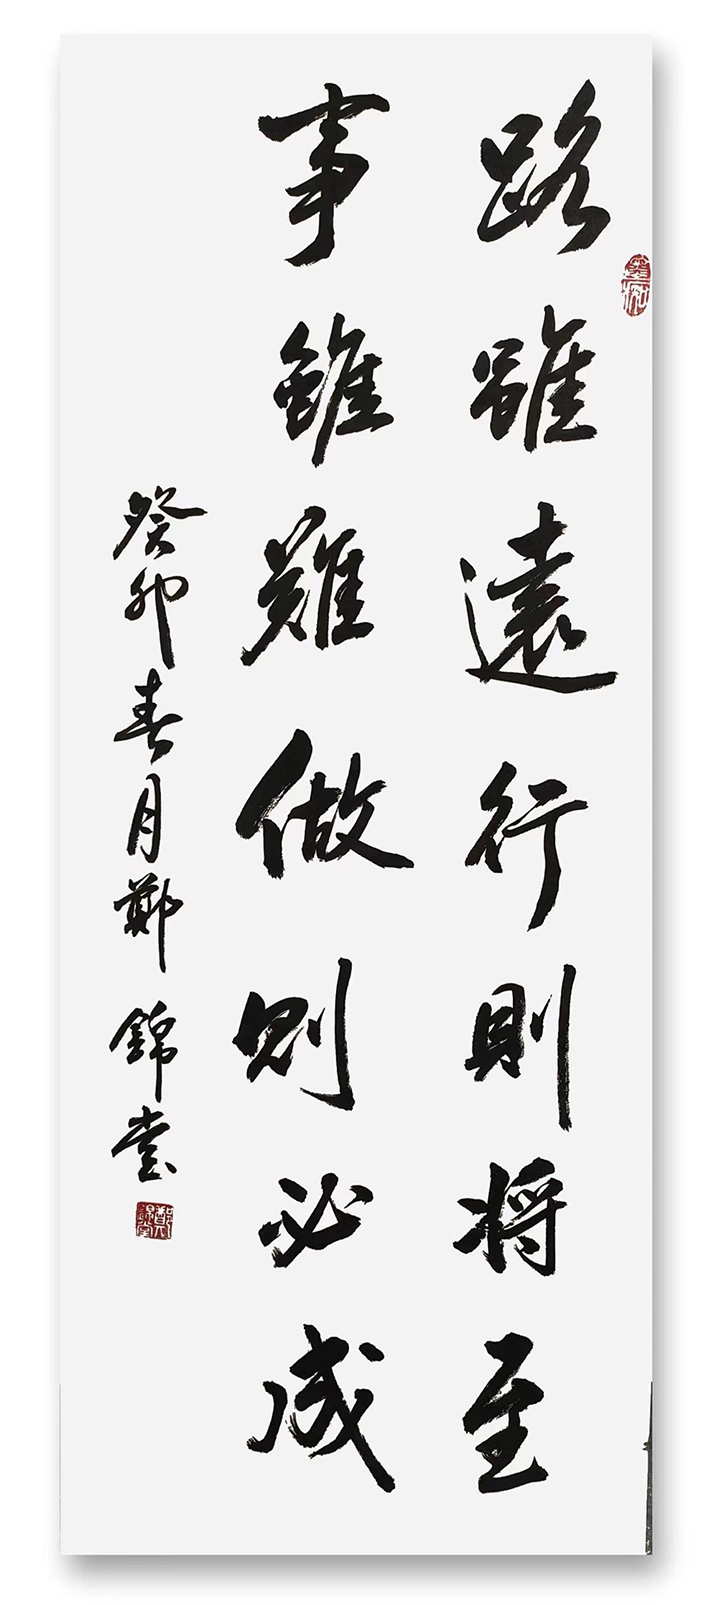 路雖遠行則将至
事雖難做則必成
癸卯春月鄭錦堂